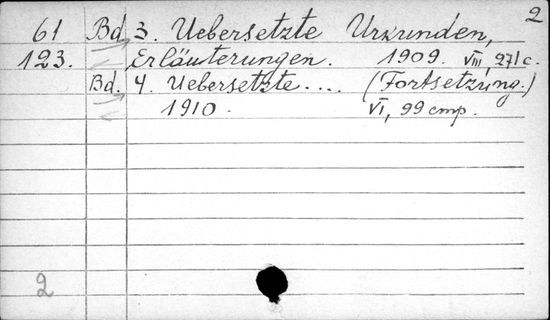 2
61 Bd. 3. Uebersetzte Urkunden,
123. Erläuterungen. 1909. VIII, 271 c.
Bd. 4. Uebersetzte.... (Fortsetzung.)
1910. VI, 99 cmp.
2